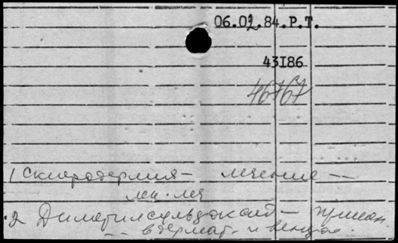 06.02.84.Р.Т.
43I86
46767
1 Склеродермия — лечение —
лек. леч
2 Диметилсульфоксид — примен.
— — в дермат. и венер.